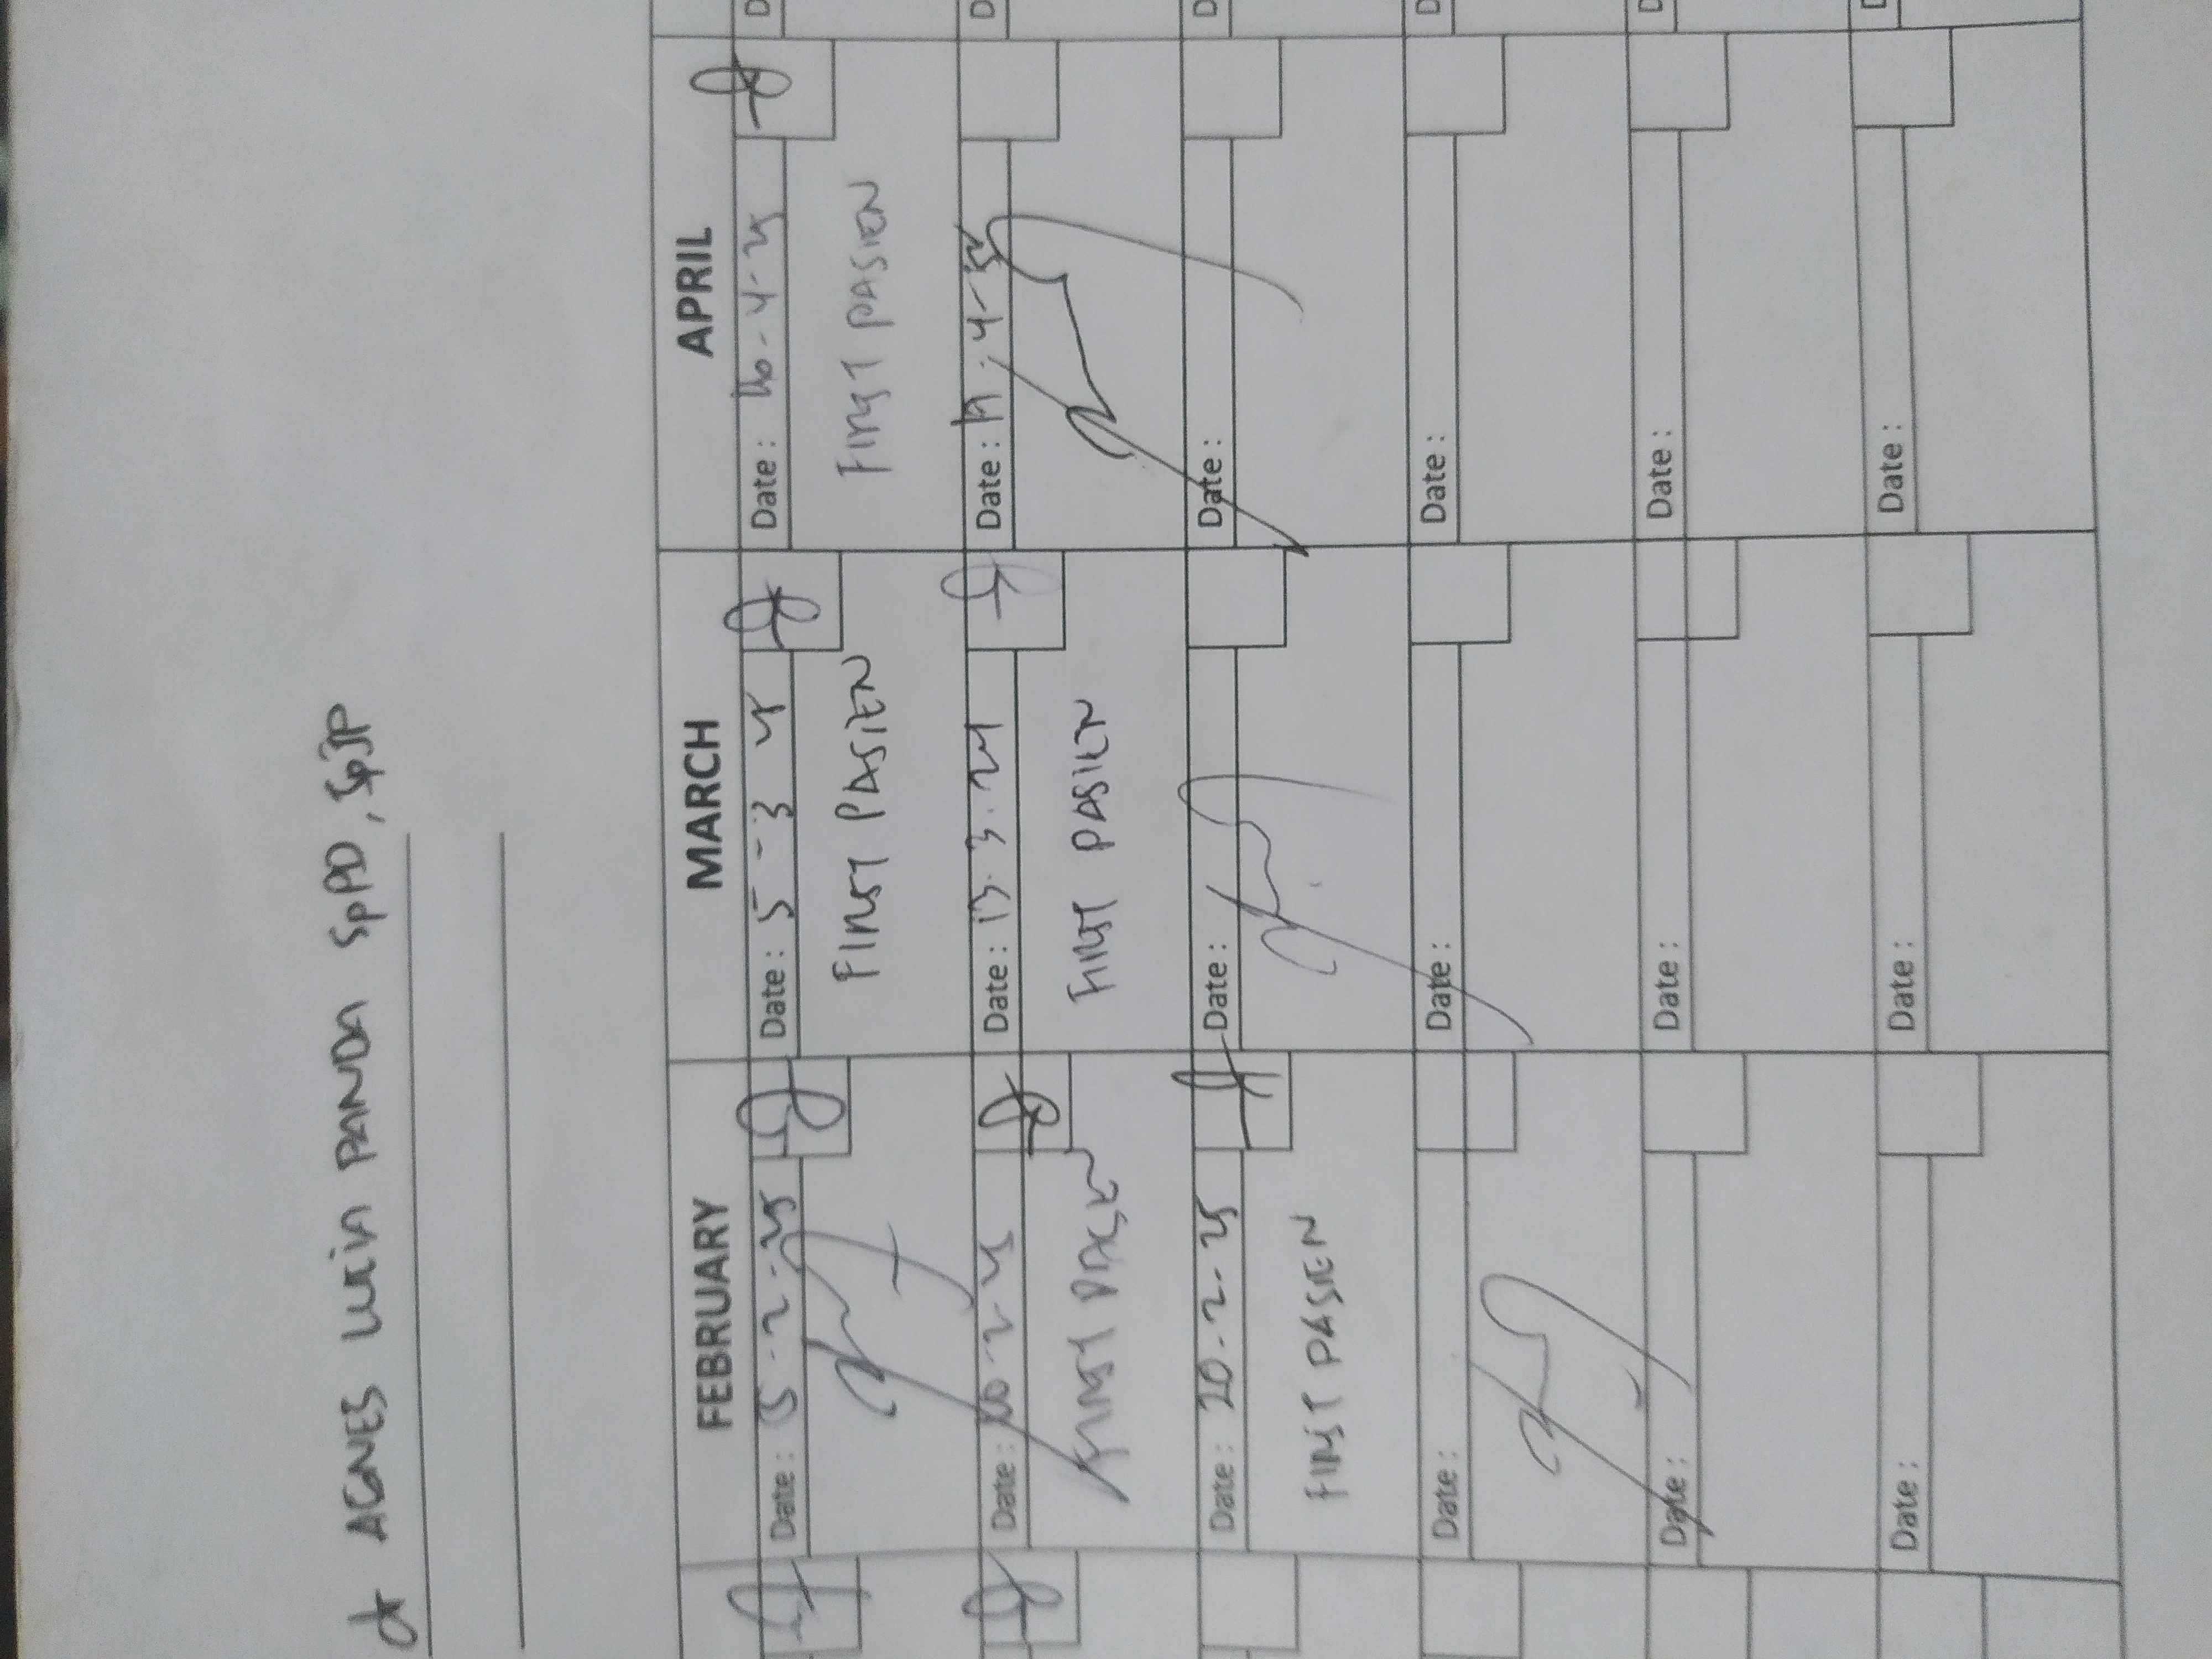 dr AGNES LUCIA PANDA SpPD, SpJP
FEBRUARY MARCH APRIL
Date : 5-2-25 Date : 5-3 Date : 16-4-25
FIRST PASIEN FIRST PASIEN
Date : -2-25 Date : 13.3. Date : 4-25
FIRST FIRST PASIEN
Date : 20-2-25 Date : Date :
FIRST PASIEN
Date : Date : Date :
Date : Date : Date :
Date : Date : Date :